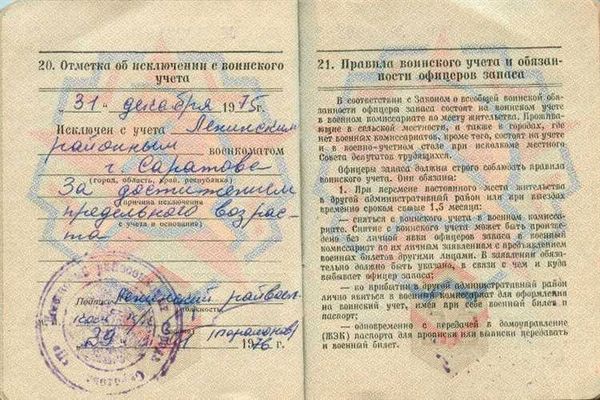 20. Отметка об исключении с воинского
учета
„31" декабря 1975г.
Исключен с учета Ленинским
районным
военкоматом
г. Саратова
(город, область, край, республика)
За достижением
(причина исключения
предельного возрас-
с учета и основания)
та
Подпись Ленинский райвоен-
ком п/п-к
29 1976 г.
21. Правила воинского учета и обязан-
ности офицеров запаса
В соответствии с Законом о всеобщей воинской обя-
занности офицеры запаса состоят на воинском учете
в военном комиссариате по месту жительства. Прожива-
ющие в сельской местности, а также в городах, где
нет военных комиссариатов, кроме того, состоят на уче-
те и в военно-учетном столе при исполкоме местного
Совета депутатов трудящихся.
Офицеры запаса должны строго соблюдать правила
воинского учета. Они обязаны:
1. При перемене постоянного места жительства
в другой административный район или при выездах
временно сроком свыше 1,5 месяца:
— сняться с воинского учета в военном комисса-
риате. Снятие с воинского учета может быть произ-
ведено без личной явки офицеров запаса в военный
комиссариат по их личным заявлениям с предъявлением
военных билетов другими лицами. В заявлении обяза-
тельно должно быть указано, в связи с чем и куда
выбывает офицер запаса;
— по прибытии в другой административный район
лично явиться в военный комиссариат для оформления
на воинский учет, имея при себе военный билет и
паспорт;
— одновременно с передачей в домоуправление
(ЖЭК) паспорта для прописки или выписки передавать
и военный билет.